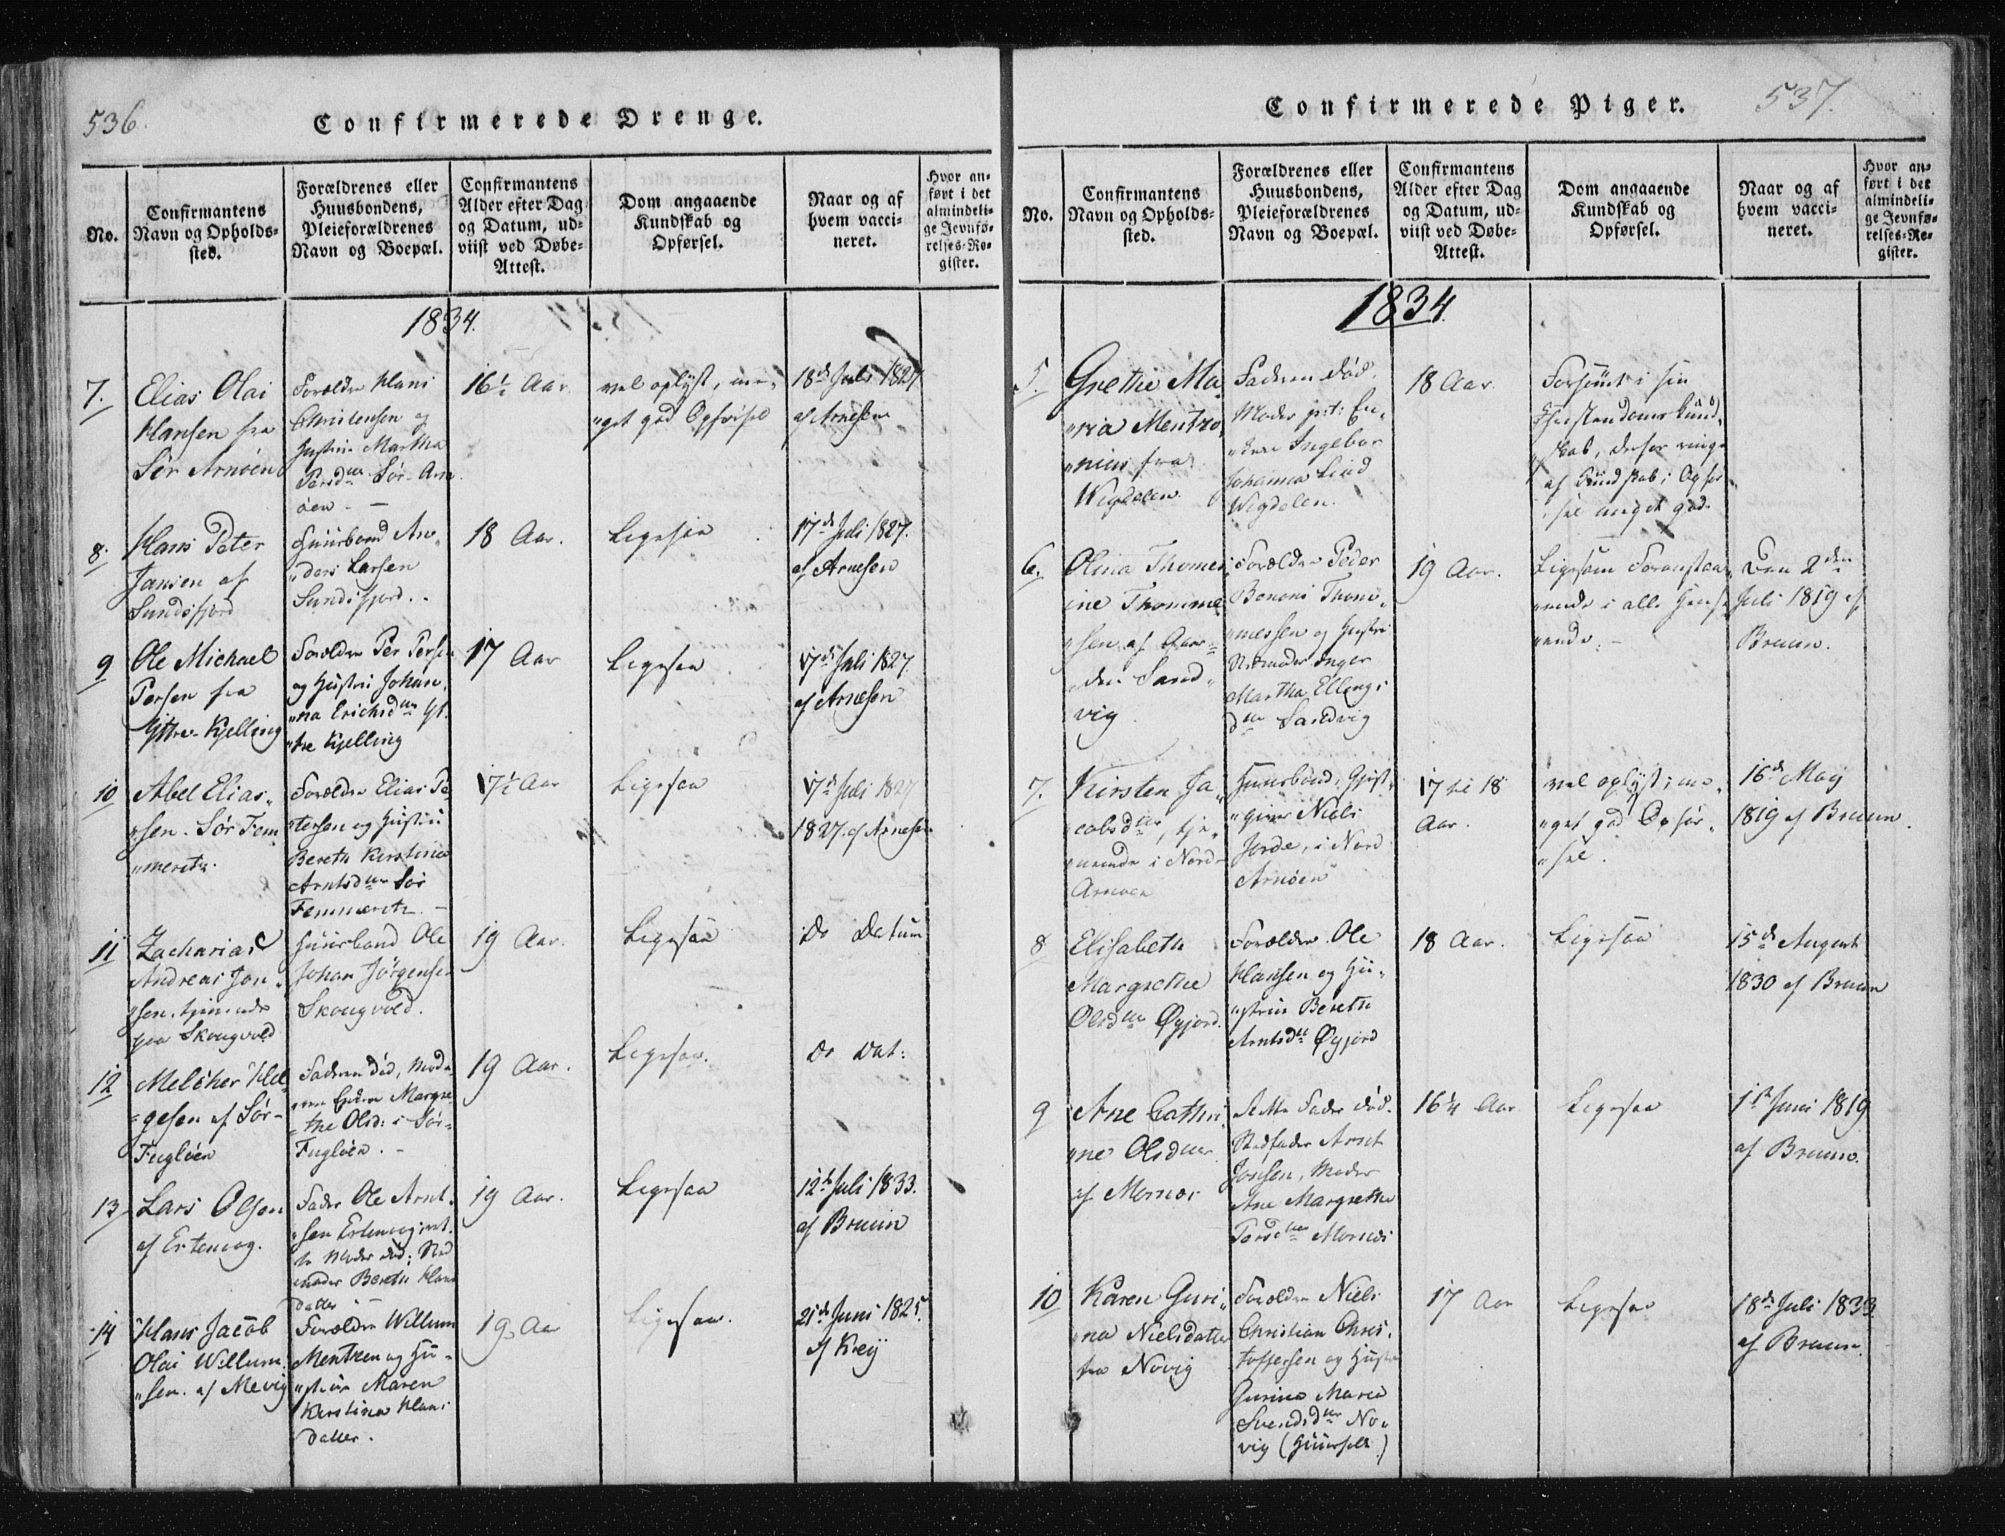 536.
Confirmerede Drenge.
No.
Confirmantens
Navn og Opholds-
sted.
Forældrenes eller
Huusbondens,
Pleieforældrenes
Navn og Boepæl.
Confirmantens
Alder efter Dag
og Datum, ud-
viist ved Døbe-
Attest.
Dom angaaende
Kundskab og
Opførsel.
Naar og af
hvem vacci-
neret.
Hvor an-
ført i det
almindeli-
ge Jevnfø-
relses-Re-
gister.
1834.
7.
Elias Olai
Hansen fra
Sør Arnøen
Forældre Hans
Christensen og
Hustrue Martha
Persd. Sør-Arn
öen.
16½ Aar.
vel oplyst, me-
get god Opførsel
18de Juli 1827
af Arnesen
8.
Hans Peter
Jansen af
Sundsfjord
Huusbond An-
ders Larsen
Sundsfjord.
18 Aar.
Ligesaa
17de Juli 1827.
af Arnesen
9
Ole Michael
Persen fra
Yttre-Kjelling
Forældre Per Persen
og Hustrue Johan-
na Erichsd. Yt-
tre Kjelling
17 Aar
Ligesaa
17de Juli 1827
af Arnesen
10
Abel Elias-
sen. Sør Fem
meretn.
Forældre Elias Pe-
tersen og Hustrue
Bereth Kerstina
Arntsd. Sör
Femmeretn.
17½ Aar
Ligesaa
17de Juli 1827
1827. af Arnesen
11
Zacharias
Andreas Jon-
sen, tjenende
paa Skougvold
Huusbond Ole
Johan Jørgensen
Skougvold.
19 Aar.
Ligesaa
Do Datum
12
Melcher Hel-
gesen af Sør-
Fugløen
Faderen död, Mode-
ren Enken Margre-
the Olsd: i Sør-
Fugløen.
19 Aar.
Ligesaa.
Do Dat:
13
Lars Olsen
af Estenvog.
Fader Ole Arnt-
sen Estenvog
Moder död; Sted
moder Bereth Hans
datter
19 Aar.
Ligesaa
12te Juli 1833.
af Bruun
14
Hans Jacob
Olai Willum-
sen. af Mevig
Forældre Willum
Mentzen og Hu-
strue Maren
Kerstina Hans
datter.
19 Aar
Ligesaa.
21de Juni 1825.
af Krey
Confirmerede Piger.
537.
No.
Confirmantens
Navn og Opholds-
sted.
Forældrenes eller
Huusbondens,
Pleieforældrenes
Navn og Boepæl.
Confirmantens
Alder efter Dag
og Datum, ud-
viist ved Døbe-
Attest.
Dom angaaende
Kundskab og
Opførsel.
Naar og af
hvem vacci-
neret.
Hvor an-
ført i det
almindeli-
ge Jevnfø-
relses-Re-
gister.
1834
5.
Grethe Ma
ria Mentzo-
nius fra
Wigdelen
Faderen död.
Moder p:t: En-
ken Ingebor
Johanna Lind
Wigdelen.
18 Aar.
Forsømt i sin
Christendoms Kund-
skab, derfor ringe
af Kundskab; Opfør
sel meget god.
6.
Olina Thomes
ine Thomme
sen af
Sand-
vig
Forældre Peder
Benoni Thom-
messen og Hustru
Stedmoder Inger
Martha Ellings
d. Sandvig
19 Aar.
Ligesom Foranstaa-
ende i alle Hense
ende.
Den 2den
Juli 1819 af
Bruun.
7.
Kirsten Ja-
cobsd., tje-
nende i Nord-
Arnøen
Huusbond, Gjest-
giver Niels
Jorde, i Nord
Arnøen
17 til 18
Aar.
vel oplyst; me-
get god Opfør-
sel.
16de May
1819 af Bruun.
8
Elisabeth
Margrethe
Olsd. Øyjord.
Forældre Ole
Hansen og Hu-
strue Bereth
Arntsd. Øyjord
18 Aar.
Ligesaa
15de August
1830 af Bruun
9
Ane Cathri-
ne Olsdtr.
af Mornæs
Fader död.
Stedfader Arnt
Jonsen, Moder
Ane Margretha
Persd. Mornæs
16¼ Aar
Ligesaa
1ste Juni 1819
af Bruun.
10
Karen Guri-
na Nielsdatter
fra Novig
Forældre Niels
Christian Chris-
toffersen og Hustru
Gurina Maria
Svendsd. No-
vig (Huusfolk)
17 Aar
Ligesaa
18de Juli 1833
af Bruun.